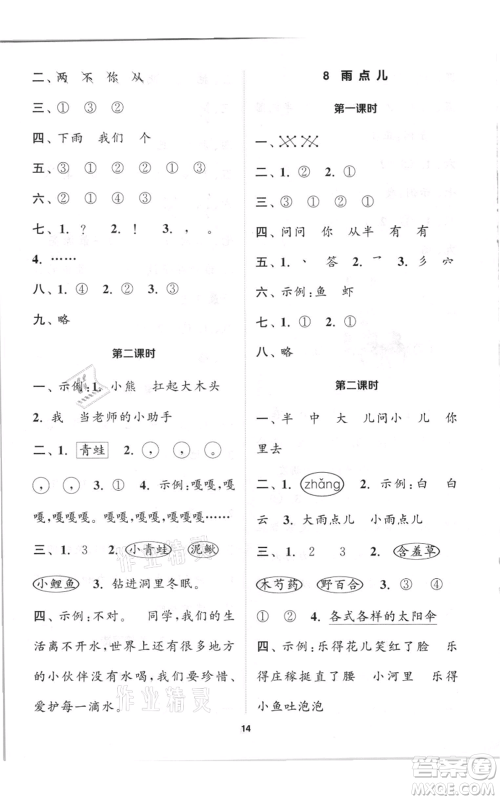 二、两 不 你 从
三、③ ① ② ③
四、下雨 我们 个
五、③ ③ ① ② ③
六、② ① ① ①
七、1. ? 2. ! 3. , 。
4. ……
八、1. ④ 2. ② 3. ①
九、略
第二课时
一、示例:1. 小熊 扛起大木头
2. 我 当老师的小助手
二、1. 青蛙 2. , , ,
, , 3. ① 4. 示例:嘎,嘎,嘎
嘎,嘎嘎,嘎嘎嘎,嘎嘎嘎嘎。
三、1. 3 2. 小青蛙 泥鳅
小鲤鱼 3. 钻进洞里冬眠。
四、示例:不对。 同学,我们的生
活离不开水,世界上还有很多
的小伙伴没有水喝,我们要珍惜、
爱护每一滴水。
8 雨点儿
第一课时
一、
二、1. ① ② 2. ①
三、③ ① ② ①
四、问问 你 从半 有有
五、1. 丶 答 2. ㇖ 3. 彡 六
六、示例:鱼 虾
七、1. ② 2. ① ①
八、略
第二课时
一、半 中 大 儿问小儿 你
里去
二、1. zhǎng 2. 示例:白 白
云 大雨点儿 小雨点儿
三、1. ③ ④ ② 2. 含羞草
木芍药 野百合 3. ① ③ ②
① 4. 各式各样的太阳伞
四、示例:乐得花儿笑红了脸 乐
得庄稼挺直了腰 小河里 乐得
小鱼吐泡泡
14
作业精灵
作业精灵
答案圈
MXQE.COM